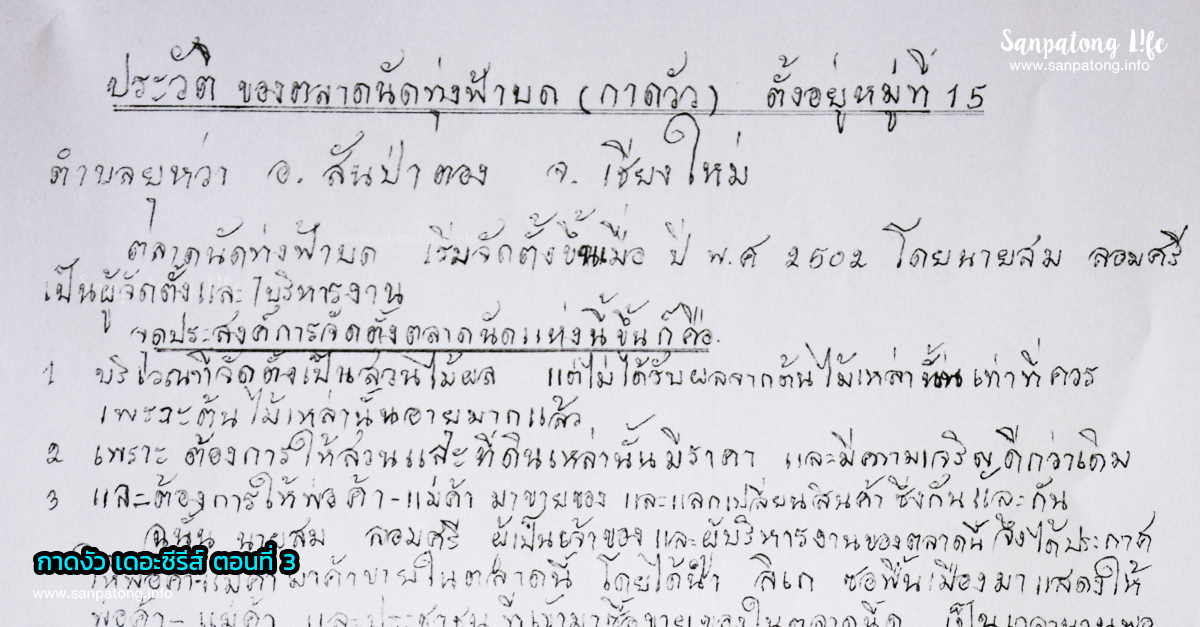 Sanpatong L!fe
www.sanpatong.info
ประวัติ ของตลาดนัดทุ่งฟ้าบด (กาดวัว) ตั้งอยู่หมู่ที่ 15
ตำบลยุหว่า อ. สันป่าตอง จ. เชียงใหม่
ตลาดนัดทุ่งฟ้าบด เริ่มจัดตั้งขึ้นเมื่อ ปี พ.ศ 2502 โดยนายสม ลอมศรี
เป็นผู้จัดตั้งและบริหารงาน
จุดประสงค์การจัดตั้งตลาดนัดแห่งนี้ขึ้นก็คือ.
1 บริเวณที่จัดตั้งเป็นสวนไม้ผล แต่ไม่ได้รับผลจากต้นไม้เหล่านั้นเท่าที่ควร
เพราะต้นไม้เหล่านั้นอายุมากแล้ว
2 เพราะ ต้องการให้สวนและที่ดินเหล่านั้นมีราคา และมีความเจริญดีกว่าเดิม
3 และต้องการให้พ่อค้า-แม่ค้า มาขายของ และแลกเปลี่ยนสินค้า ซึ่งกันและกัน
ฉนั้น นายสม ลอมศรี ผู้เป็นเจ้าของและผู้บริหารงานของตลาดนี้ จึงได้ประกาศ
ให้พ่อค้า-แม่ค้า มาค้าขายในตลาดนี้ โดยได้นำ ลิเก ซอพื้นเมืองมาแสดงให้
พ่อค้า-แม่ค้า และประชาชนที่เข้ามาซื้อขายของในตลาดนี้ดู เป็นเวลานานพอ
กาดงัว เดอะซีรีส์ ตอนที่ 3
www.sanpatong.info